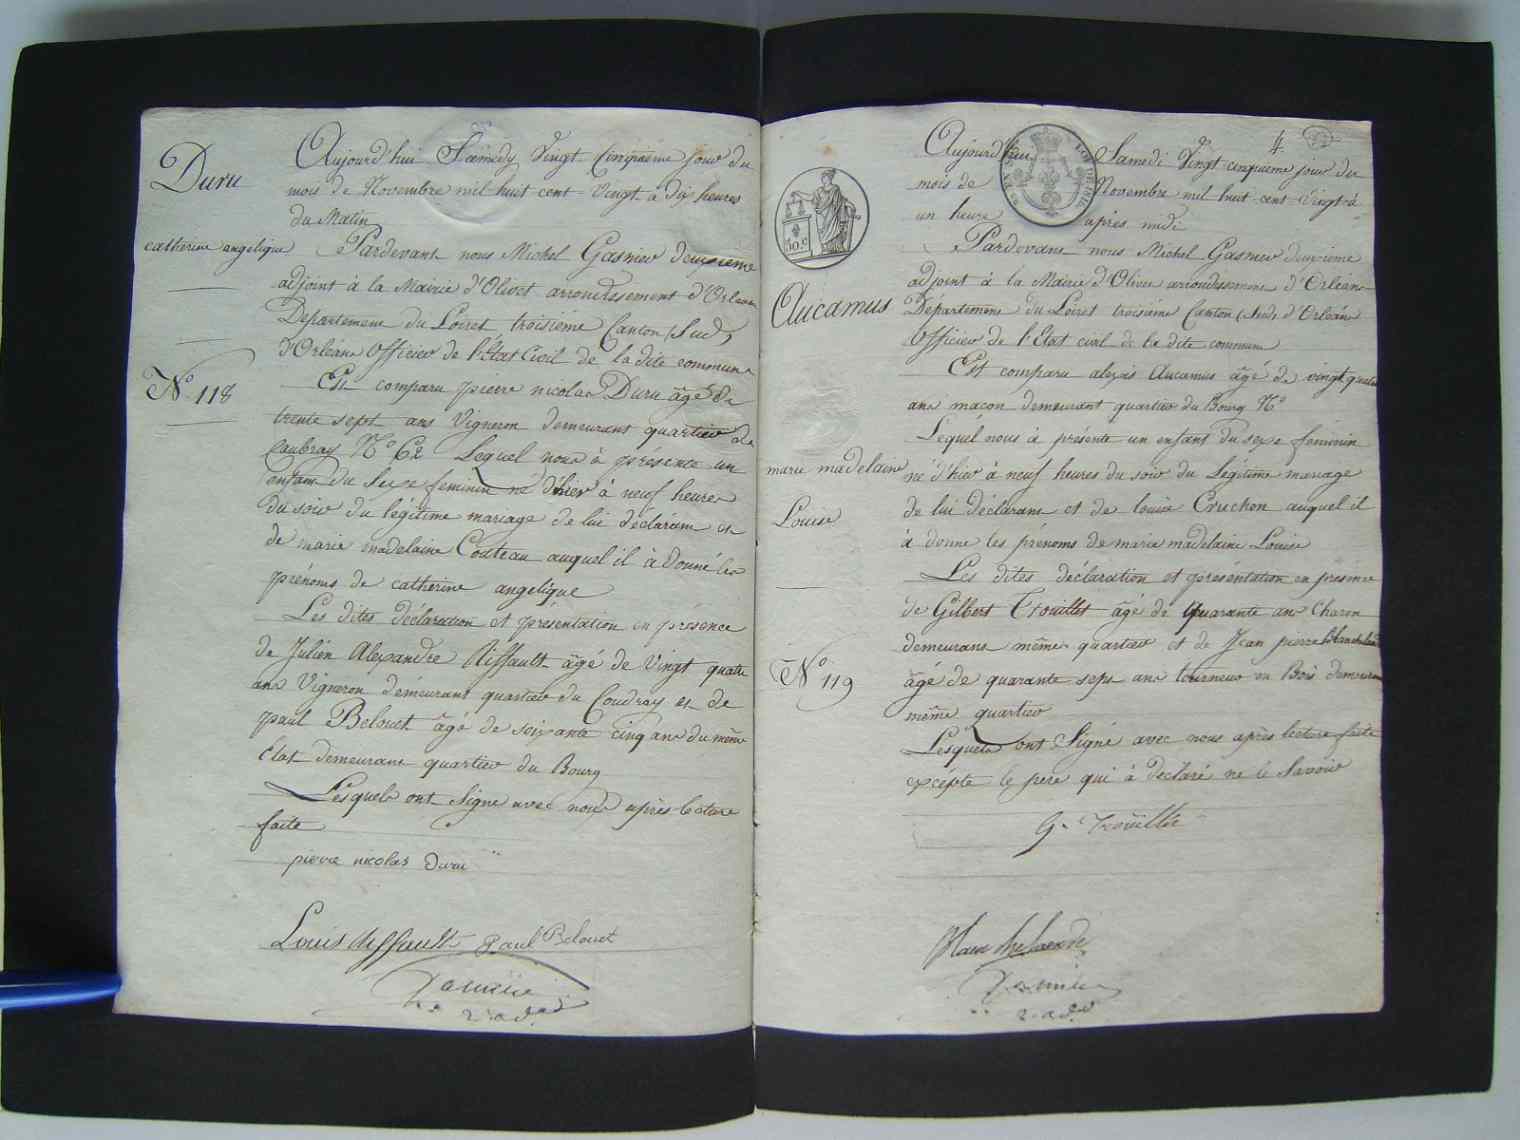 Duru
catherine angelique
N.º 118
Aujourd'hui Samedy Vingt Cinquieme jour du
mois de Novembre mil huit cent Vingt à dix heures
du Matin
Pardevant nous Michel Gasnier deuxieme
adjoint à la Mairie d'Olivet arrondissement d'Orleans
Departement du Loiret troisieme Canton (Sud)
d'Orléans Officier de l'Etat Civil de la dite commune
Est comparu pierre nicolas Duru âgé de
trente sept ans Vigneron demeurant quartier de
Caubray N.º 62 Lequel nous à présenté un
enfant du Sexe feminin né d'hier à neuf heures
du soir du légitime mariage de lui déclarant et
de marie madelaine Coateau auquel il à donné les
prénoms de catherine angelique
Les dites déclaration et présentation en présence
de Julien Alexandre Riffault âgé de Vingt quatre
ans Vigneron demeurant quartier du Coudray et de
paul Belouet âgé de soixante cinq ans du même
Etat demeurant quartier du Bourg
Lesquels ont Signé avec nous après lecture
faite
pierre nicolas Duru
Louis Riffault Paul Belouet
2. ad.
4
50 c
Aucamus
marie madelaine
Louise
N.º 119
Aujourd'hui Samedi Vingt cinquieme jour du
mois de Novembre mil huit cent Vingt à
un heure après midi
Pardevant nous Michel Gasnier deuxieme
adjoint à la Mairie d'Olivet arrondissement d'Orléans
Département du Loiret troisieme Canton (Sud) d'Orléans
Officier de l'Etat civil de la dite commune
Est comparu alexis Aucamus âgé de vingt quatre
ans maçon demeurant quartier du Bourg N.º
Lequel nous à présenté un enfant du sexe feminin
né d'hier à neuf heures du soir du Légitime mariage
de lui déclarant et de louise Cruchon auquel il
à donné les prénoms de marie madelaine Louise
Les dites déclaration et présentation en présence
de Gilbert Trouillet âgé de quarante ans Charon
demeurant même quartier et de Jean pierre Blanchelande
âgé de quarante sept ans tourneur en Bois demeurant
même quartier
Lesquels ont Signé avec nous après lecture faite
excépté le pere qui à déclaré ne le Savoir
G. Trouillet
2. ad.